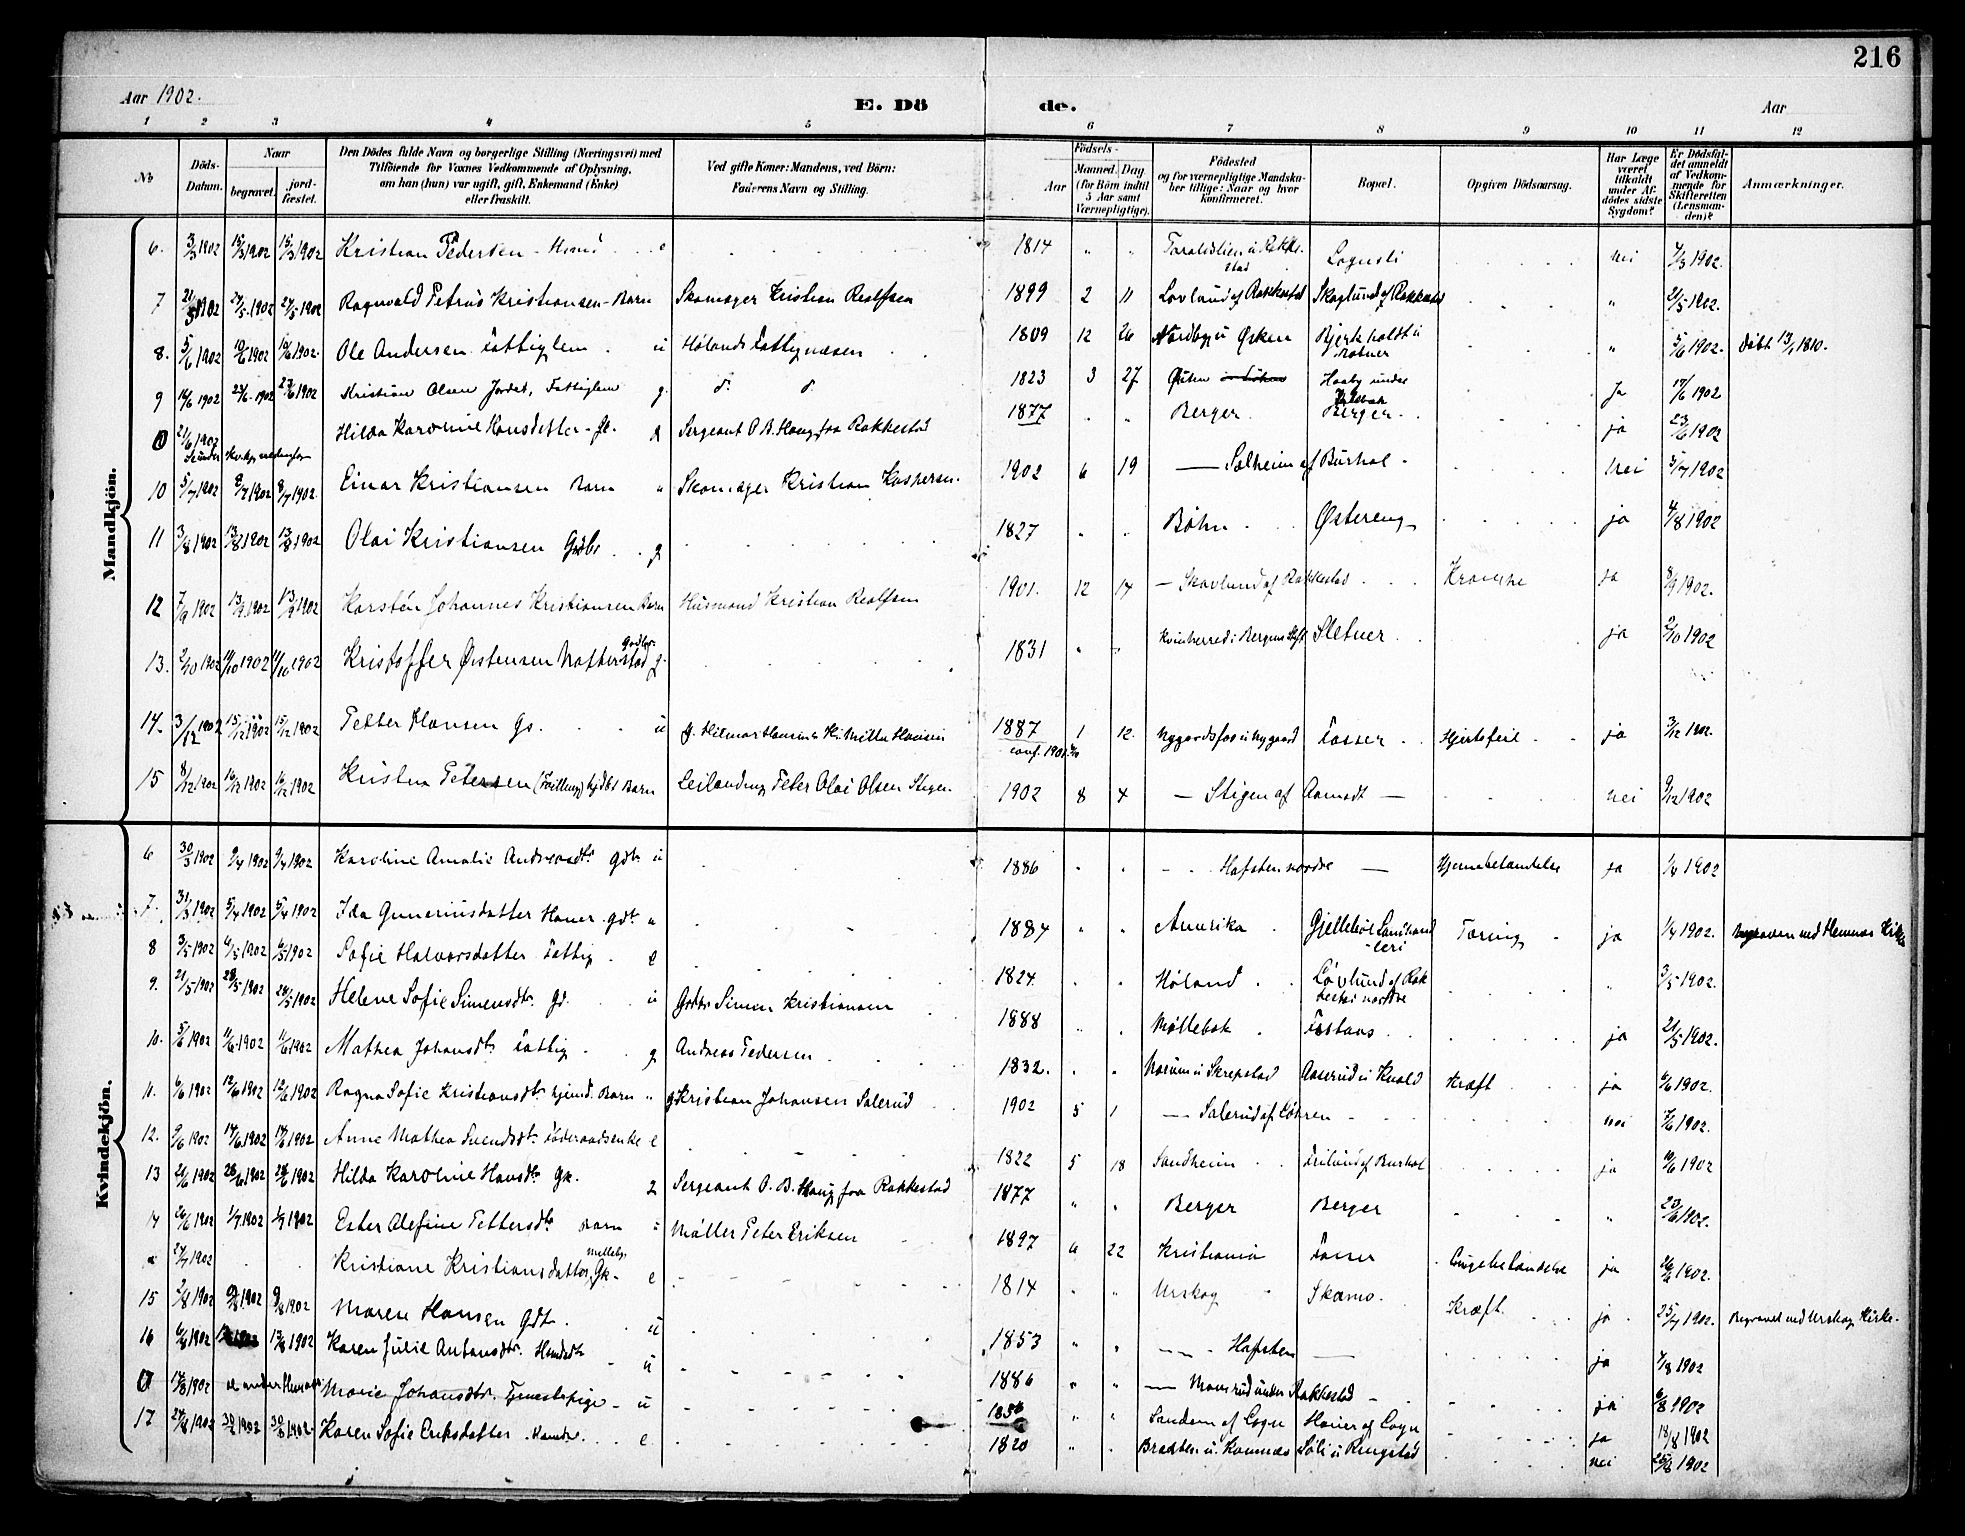 216
Aar 1902.
E. Dö
de.
Aar
1 2 3 4 5 6 7 8 9 10 11 12
No
Döds-Datum.
Naar
begravet.
jord-fæstet.
Den Dödes fulde Navn og borgerlige Stilling (Næringsvei) med
Tilföiende for Voxnes Vedkommende af Oplysning,
om han (hun) var ugift, gift, Enkemand (Enke)
eller fraskilt.
Ved gifte Koner: Mandens, ved Börn:
Faderens Navn og Stilling.
Födsels-
Aar
Maaned. Dag.
(for Börn indtil
5 Aar samt
Værnepligtige).
Födested
og for værnepligtige Mandska-
ber tillige: Naar og hvor
konfirmeret.
Bopæl.
Opgiven Dödsaarsag.
Har Læge
været
tilkaldt
under Af-
dödes sidste
Sygdom?
Er Dödsfal-
det anmeldt
af Vedkom-
mende for
Skifteretten
(Lensman-
den)?
Anmærkninger.
Mandkjön.
6. 3/3 1902 15/3 1902 15/3 1902 Kristian Pedersen - e 1814 " " nei 4/3 1902.
7 21/5 1902 27/5 1902 27/5 1902 Ragnvald Petrus Kristiansen - Barn Skomager Kristian Realfsen 1899 2 11 Lovlund af Rakkestad Skoglund af Rakkestad " 21/5 1902.
8. 5/6 1902 10/6 1902 10/6 1902. Ole Andersen Fattiglem u Hølands Fattigvæsen 1809 12 26 Nordby u Ysken Bjerkholdt u " 5/6 1902. Døbt 13/1 1810.
9 16/6 1902 23/6 1902 23/6 1902 Kristian Olsen Jordet, Fattiglem g. d. d. 1823 3 27 Haaby under Ja 17/6 1902
0 21/6 1902 Hilda Karoline Hansdatter - Gk. g Sergeant O. B. Haug fra Rakkestad 1877 " " Berger Berger ja 23/6 1902
10 5/7 1902 8/7 1902 8/7 1902. Einar Kristiansen Barn " Skomager Kristian Kaspersen. 1902 6 19 — Solheim af Burhol - nei 5/7 1902
11 3/8 1902 13/8 1902 13/8 1902 Olai Kristiansen Gdbr g 1827 " " Bøhn Østereng ja 4/8 1902
12 7/9 1902 13/9 1902 13/9 1902 Karsten Johannes Kristiansen Barn Husmand Kristian Realfsen 1901. 12 14 — Skovlund af Rakkestad Krampe ja 8/9 1902.
13. 2/10 1902 11/10 1902 11/10 1902 Kristoffer Østensen Nafterstad Gadbr. g. 1831 " " Kvinherred i Bergens Stift Sletner ja 2/10 1902
14. 3/12 1902 15/12 1902 15/12 1902 Petter Hansen Gs. u 1887 1 12. Nygaardsfos u Nygaard Fosser Hjertefeil ja 3/12 1902.
conf. 1901
15 8/12 1902 16/12 1902 16/12 1902 Kristian Petersen (Tvilling) hjdbt Barn Leilænding Peter Olai Olsen Stigen 1902 8 4 — Stigen af Aamodt — nei 9/12 1902
Kvindekjön.
6 30/3 1902 9/4 1902 9/4 1902 Karoline Amalie Andreasdtr Gdtr u 1886 " " Hafsten nordre — Hjernebetændelse ja 1/4 1902
7. 31/3 1902 5/4 1902 5/4 1902 Ida Guneriusdatter Haner. gdtr. u 1884 " " Amerika Gjellebøl Landhandleri Tæring ja 1/4 1902. Begraven ved Hemnes Kirke
8 3/5 1902 6/5 1902 6/5 1902 Sofie Halvorsdatter Fattig e 1824. " " Høland Løvlund af Rakkestad nordre " 3/5 1902.
9. 21/5 1902 28/5 1902 28/5 1902 Helene Sofie Simensdtr. Gd. u Gdbr Simen Kristiansen 1888 " " Møllebak ja 21/5 1902.
10. 5/6 1902 11/6 1902 11/6 1902 Mathea Johansdtr Fattig g Andreas Pedersen 1832. " " Aaserud u Kvald Kræft ja 6/6 1902.
11. 6/6 1902 12/6 1902 12/6 1902 Ragna Sofie Kristiansdtr hjemd. Barn " g Kristian Johansen Salerud 1902 5 1 — Salerud af Løhren nei 7/6 1902.
12. 9/6 1902 17/6 1902 17/6 1902 Anne Mathea Svendsdtr. Föderaadsenke e 1822 5 18 Sandheim Friland af Burhol ja 10/6 1902
13 21/6 1902 28/6 1902 28/6 1902 Hilda Karoline Hansdtr Gk. g Sergeant O. B. Haug fra Rakkestad 1877 " " Berger Berger " 23/6 1902.
14 26/6 1902 1/7 1902 1/7 1902 Ester Alefine Pettersdtr Barn " Møller Peter Eriksen 1897 6 22 Kristiania Fosser Lungebetændelse ja 26/6 1902.
27/7 1902 Kristiane Kristiansdatter, Gk - e 1814 " " Urskog Skamo. Kræft ja 25/7 1902. Begravet ved Urskog Kirke.
15 2/8 1902 9/8 1902 9/8 1902 Maren Hansen Gdt. u 1853 " " Hafsten — ja 4/8 1902
16 6/8 1902 13/8 1902 Karen Julie Antonsdtr. Husmdtr u 1886 " " — Monsrud under Rakkestad - ja 6/8 1902
0 17/8 1902 Marie Johansdtr. Tjenestepige - u 1856 " " Sandem af Logn Haner af Logn ja 18/8 1902
17 24/8 1902 30/8 1902 30/8 1902. Karen Sofie Eriksdatter e 1820 " " Braaten u. Kamnæs Søli u Ringstad nei 25/8 1902